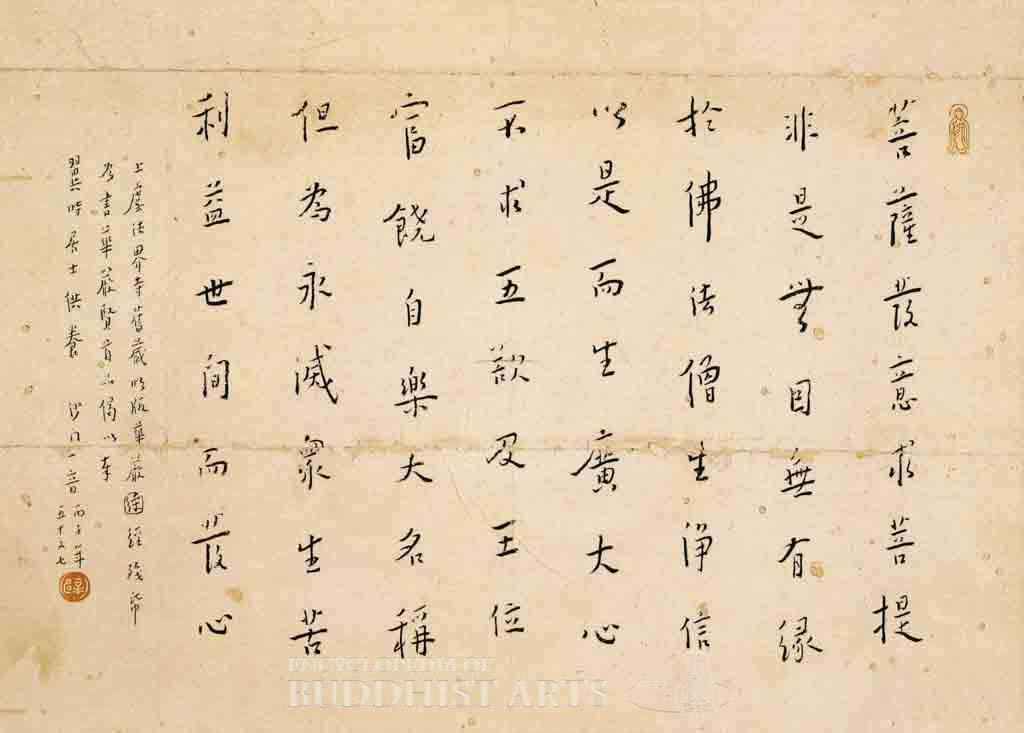 菩薩發意求菩提
非是無因無有緣
於佛法僧生淨信
以是而生廣大心
不求五欲及王位
富饒自樂大名稱
但為永滅眾生苦
利益世間而發心
上虞法界寺舊藏明版華嚴經殘帋
為書華嚴賢首品偈以奉
翼時居士供養 沙門一音 丙子年
五十又七
ENCYCLOPEDIA OF
BUDDHIST ARTS